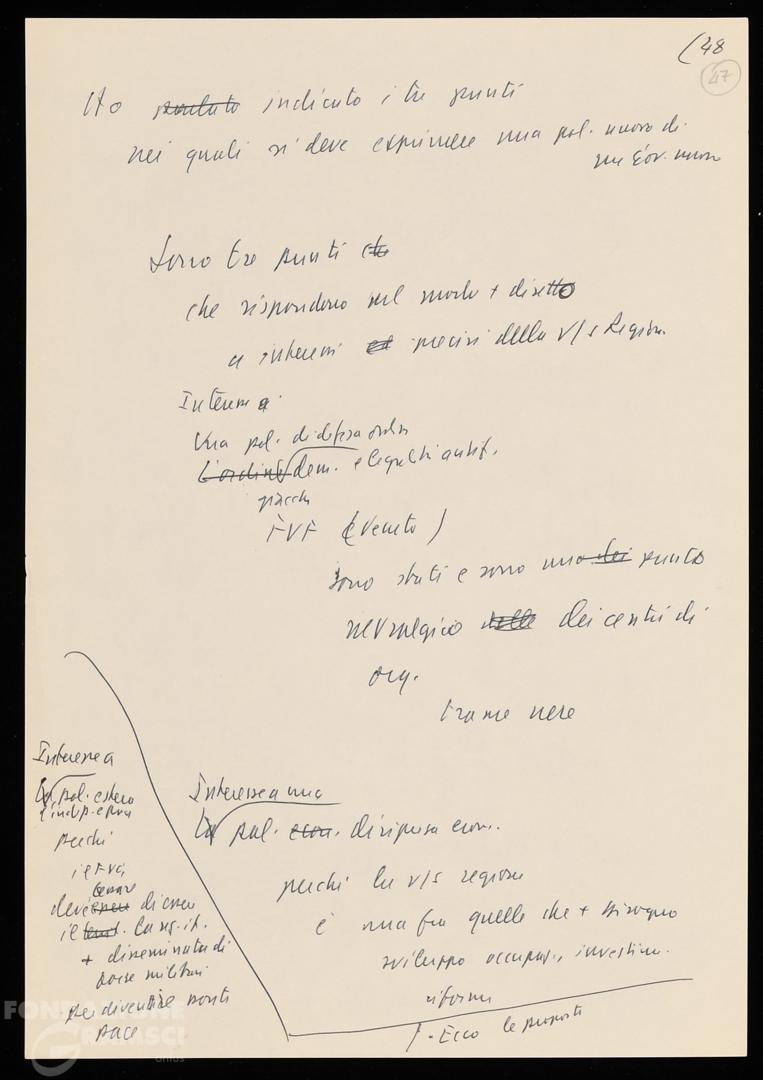 (48
47
Ho parlato indicato i tre punti
nei quali si deve esprimere una pol. nuova di
un Gov. nuovo
Sono tre punti che
che rispondono nel modo + diretto
a interessi ed precisi della v/s Region.
Interesse a
Una pol. di difesa
L'ordine dem. e legalità antif.
perché
FVG (e Veneto)
sono stati e sono uno dei punto
nevralgico delle dei centri di
org.
trame nere
Interesse a
La pol. estera
perché
il FVG
deve
il la reg. it.
+ disseminata di
basi militari
per diventare ponti
pace
Interesse a una
La pol. econ. di ripresa econ.
perché la v/s regione
è una fra quelle che + bisogno
sviluppo occupaz., investim.
riforme
- Ecco le proposte
FONDAZIONE
GRAMSCI
onlus